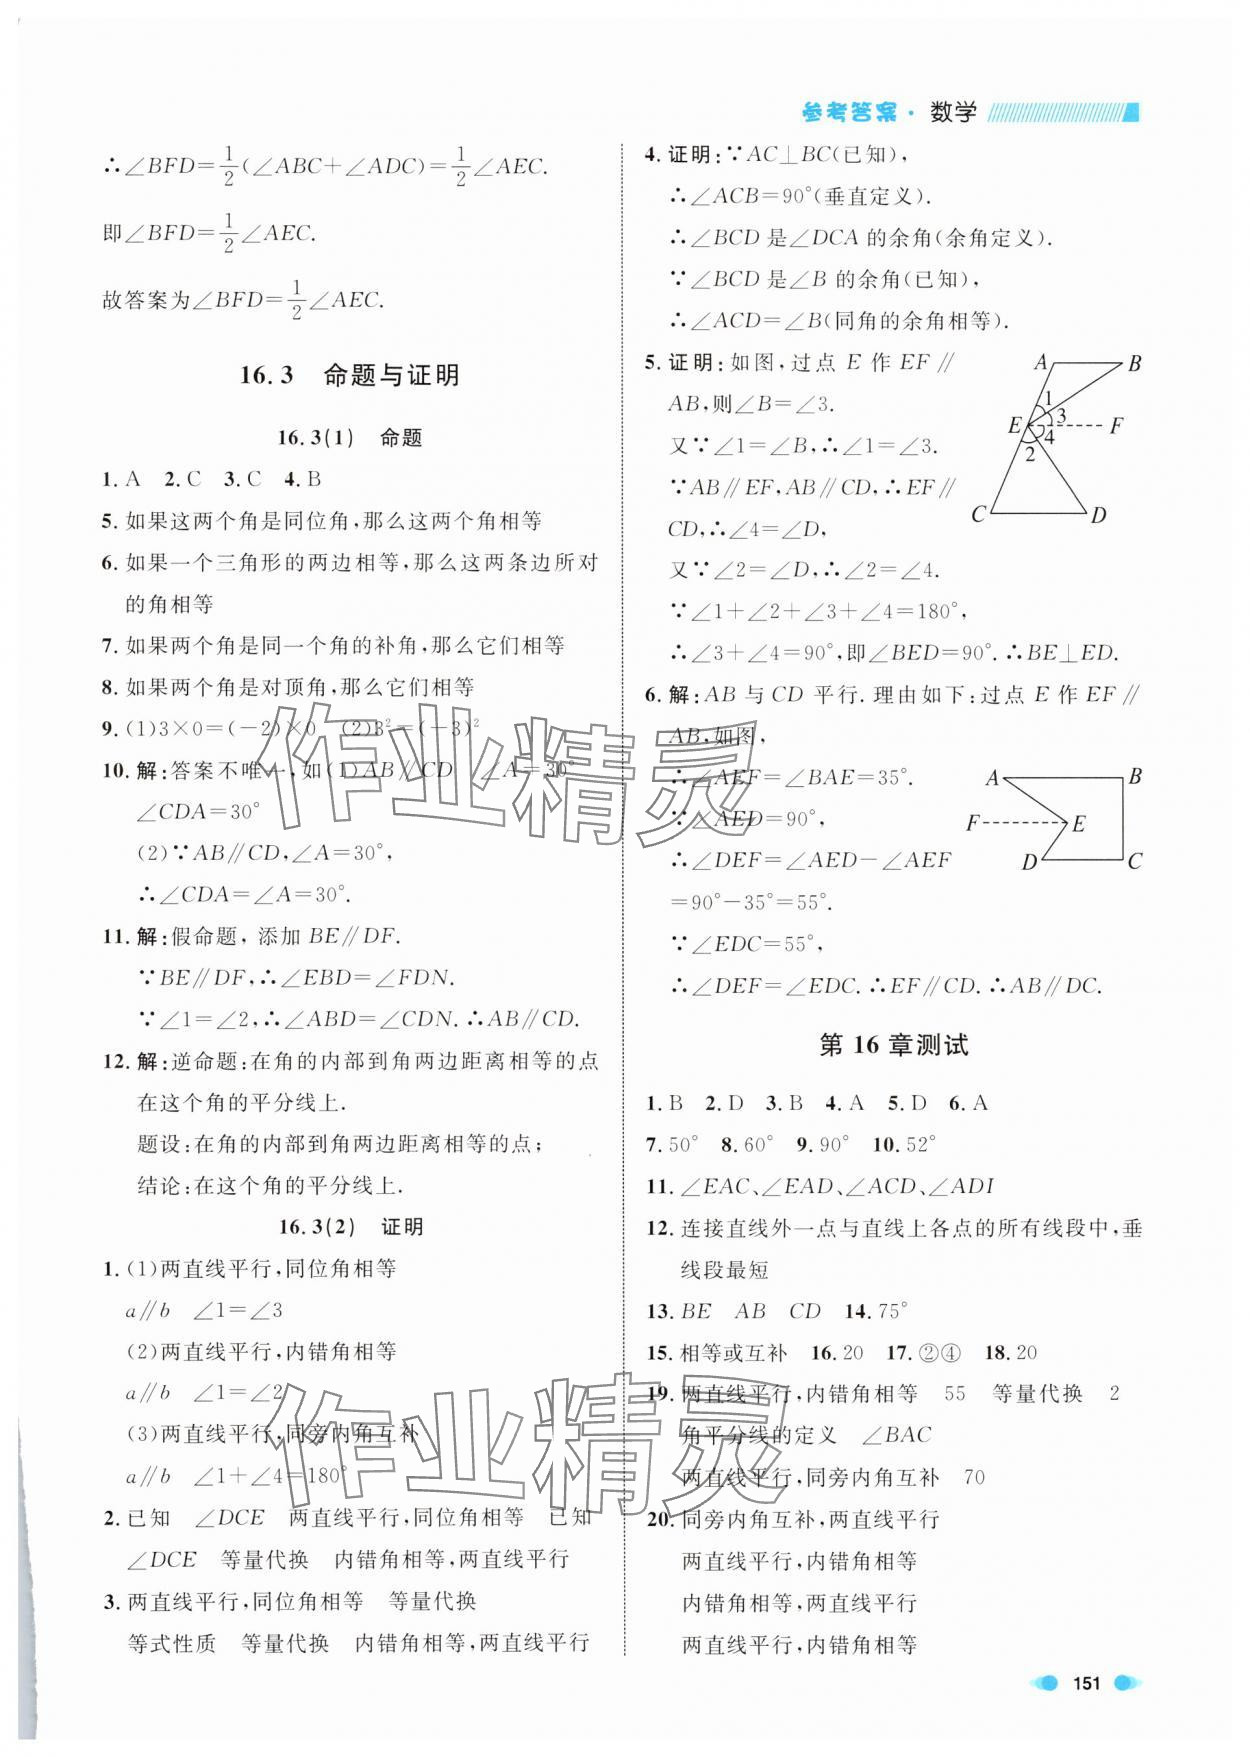 参考答案·数学
∴∠BFD=1/2(∠ABC+∠ADC)=1/2∠AEC.
即∠BFD=1/2∠AEC.
故答案为∠BFD=1/2∠AEC.
16.3 命题与证明
16.3(1) 命题
1. A 2. C 3. C 4. B
5. 如果这两个角是同位角,那么这两个角相等
6. 如果一个三角形的两边相等,那么这两条边所对
的角相等
7. 如果两个角是同一个角的补角,那么它们相等
8. 如果两个角是对顶角,那么它们相等
9. (1)3×0=(-2)×0 (2)3²=(-3)²
10. 解:答案不唯一,如(1)AB∥CD ∠A=30°
∠CDA=30°
(2)∵AB∥CD,∠A=30°,
∴∠CDA=∠A=30°.
11. 解:假命题, 添加 BE∥DF.
∵BE∥DF,∴∠EBD=∠FDN.
∵∠1=∠2,∴∠ABD=∠CDN.∴AB∥CD.
12. 解:逆命题:在角的内部到角两边距离相等的点
在这个角的平分线上.
题设:在角的内部到角两边距离相等的点;
结论:在这个角的平分线上.
16.3(2) 证明
1. (1)两直线平行,同位角相等
a∥b ∠1=∠3
(2)两直线平行,内错角相等
a∥b ∠1=∠2
(3)两直线平行,同旁内角互补
a∥b ∠1+∠4=180°
2. 已知 ∠DCE 两直线平行,同位角相等 已知
∠DCE 等量代换 内错角相等,两直线平行
3. 两直线平行,同位角相等 等量代换
等式性质 等量代换 内错角相等,两直线平行
4. 证明:∵AC⊥BC(已知),
∴∠ACB=90°(垂直定义).
∴∠BCD 是∠DCA 的余角(余角定义).
∵∠BCD 是∠B 的余角(已知),
∴∠ACD=∠B(同角的余角相等).
5. 证明:如图,过点 E 作 EF∥
AB,则∠B=∠3.
又∵∠1=∠B,∴∠1=∠3.
∵AB∥EF,AB∥CD,∴EF∥
CD,∴∠4=∠D,
又∵∠2=∠D,∴∠2=∠4.
∵∠1+∠2+∠3+∠4=180°,
∴∠3+∠4=90°,即∠BED=90°.∴BE⊥ED.
A B
1
E 3 F
4
2
C D
6. 解:AB 与 CD 平行.理由如下:过点 E 作 EF∥
AB,如图,
∴∠AEF=∠BAE=35°.
∵∠AED=90°,
∴∠DEF=∠AED-∠AEF
=90°-35°=55°.
∵∠EDC=55°,
∴∠DEF=∠EDC.∴EF∥CD.∴AB∥DC.
A B
F E
D C
第 16 章测试
1. B 2. D 3. B 4. A 5. D 6. A
7. 50° 8. 60° 9. 90° 10. 52°
11. ∠EAC、∠EAD、∠ACD、∠ADI
12. 连接直线外一点与直线上各点的所有线段中,垂
线段最短
13. BE AB CD 14. 75°
15. 相等或互补 16. 20 17. ②④ 18. 20
19. 两直线平行,内错角相等 55 等量代换 2
角平分线的定义 ∠BAC
两直线平行,同旁内角互补 70
20. 同旁内角互补,两直线平行
两直线平行,内错角相等
内错角相等,两直线平行
两直线平行,内错角相等
作业精灵
作业精灵
151